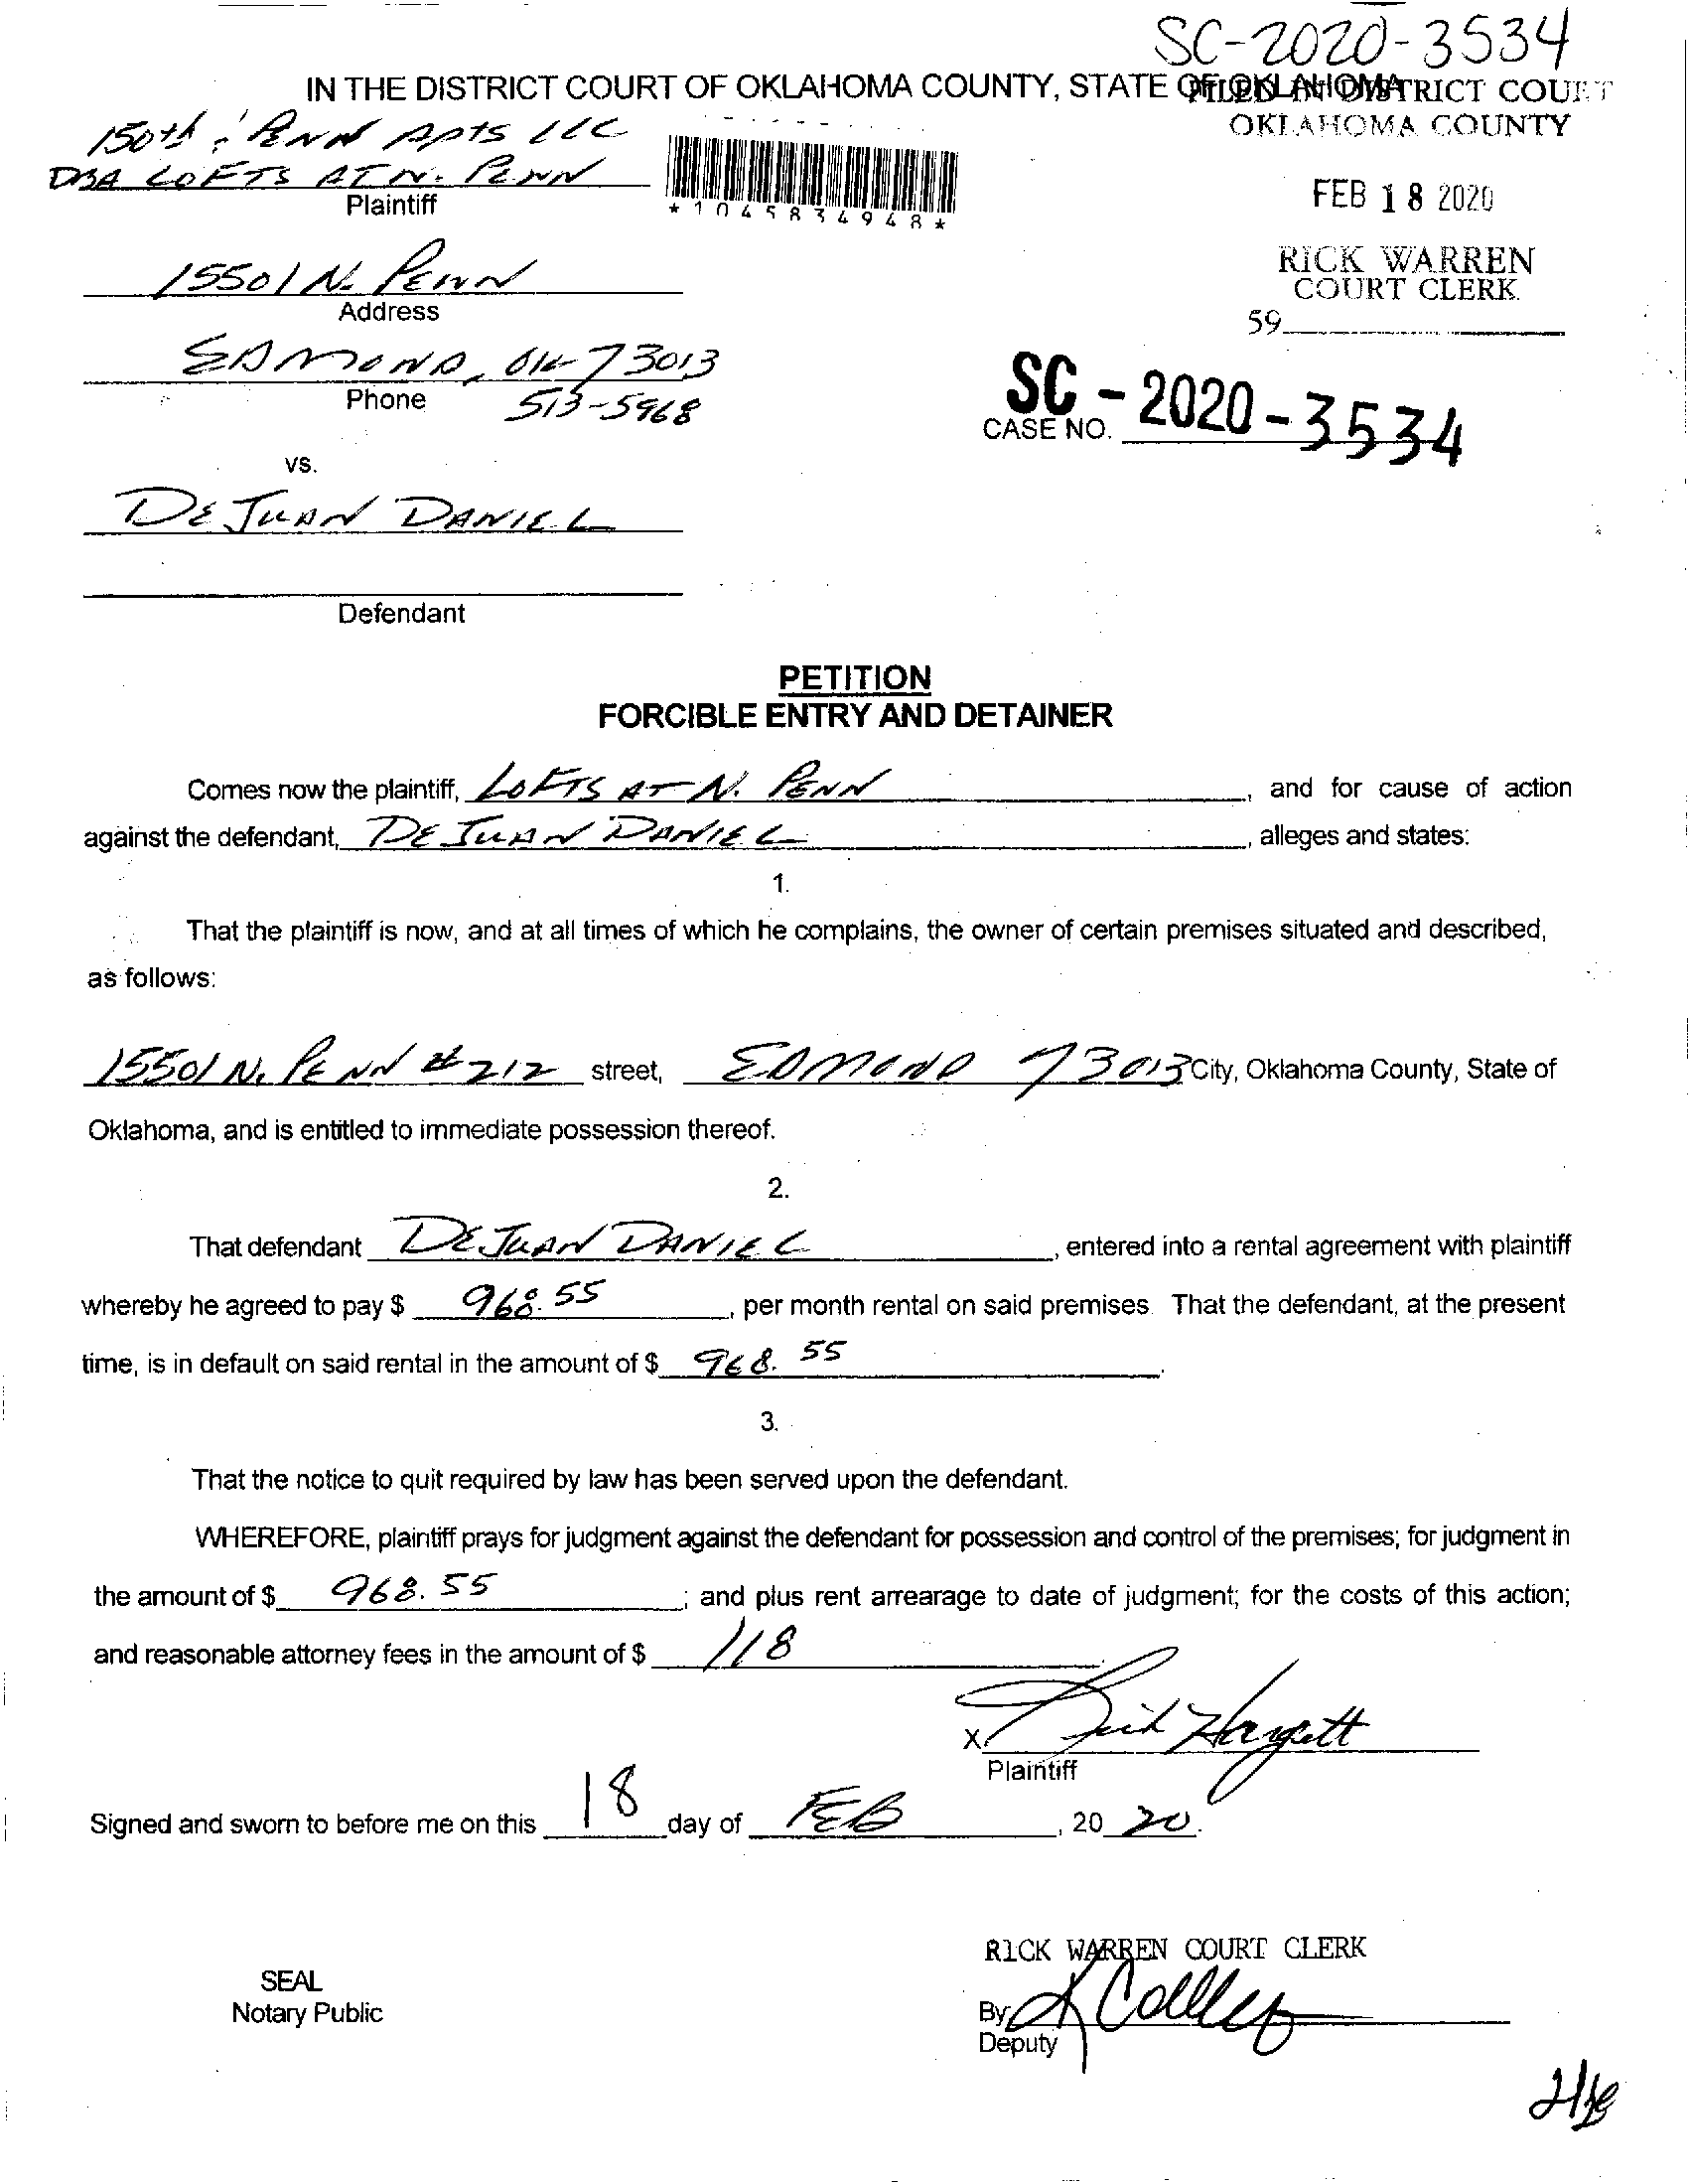 SC-2020-3534
IN THE DISTRICT COURT OF OKLAHOMA COUNTY, STATE OF OKLAHOMA
FILED IN DISTRICT COURT
OKLAHOMA COUNTY
150th & PENN Apts LLC
DBA LOFTS AT N. PENN
Plaintiff
*1045834948*
FEB 18 2020
15501 N. PENN
Address
RICK WARREN
COURT CLERK
59
EDMOND, OK 73013
Phone 513-5968
SC-2020-3534
CASE NO.
vs.
DEJUAN DANIEL
Defendant
PETITION
FORCIBLE ENTRY AND DETAINER
Comes now the plaintiff, LOFTS AT N. PENN, and for cause of action
against the defendant, DEJUAN DANIEL, alleges and states:
1.
That the plaintiff is now, and at all times of which he complains, the owner of certain premises situated and described,
as follows:
15501 N. PENN #212 street, EDMOND 73013 City, Oklahoma County, State of
Oklahoma, and is entitled to immediate possession thereof.
2.
That defendant DEJUAN DANIEL, entered into a rental agreement with plaintiff
whereby he agreed to pay $ 968.55, per month rental on said premises. That the defendant, at the present
time, is in default on said rental in the amount of $ 968.55.
3.
That the notice to quit required by law has been served upon the defendant.
WHEREFORE, plaintiff prays for judgment against the defendant for possession and control of the premises; for judgment in
the amount of $ 968.55; and plus rent arrearage to date of judgment; for the costs of this action;
and reasonable attorney fees in the amount of $ 118
X Hargett
Plaintiff
Signed and sworn to before me on this 18 day of FEB, 20 20.
RICK WARREN COURT CLERK
SEAL
Notary Public
By
Deputy